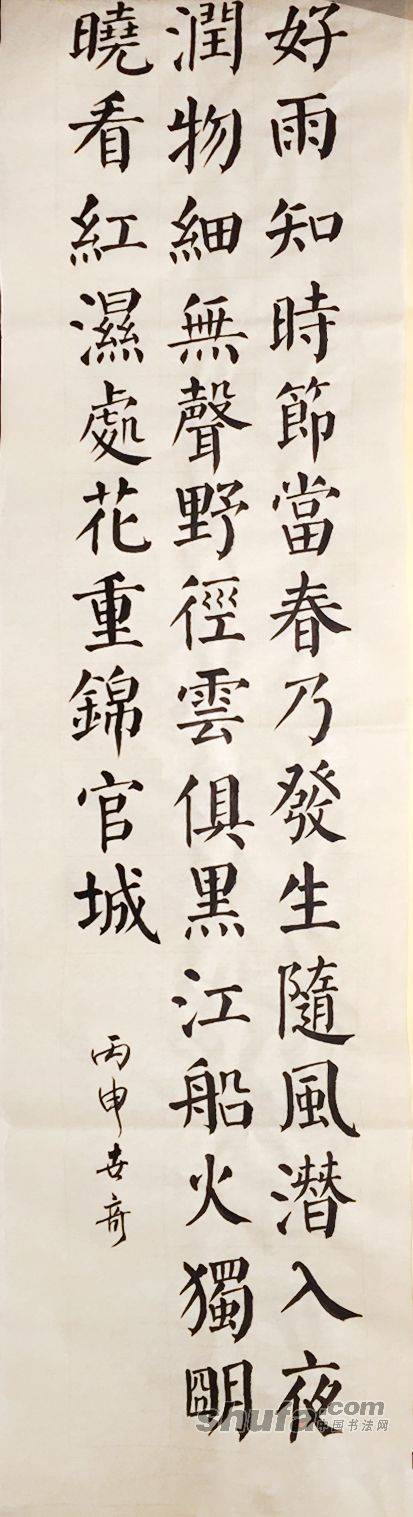 好雨知時節當春乃發生隨風潛入夜
潤物細無聲野徑雲俱黑江船火獨朙
曉看紅濕處花重錦官城
丙申世奇
shufa.com
中国书法网